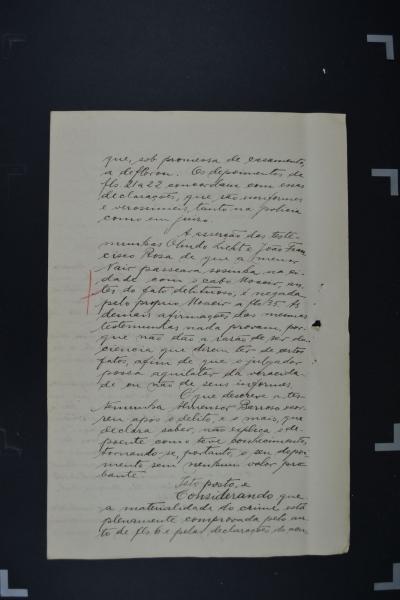 que, sob promessa de casamento,
a deflorou. Os depoimentos de
fls. 21 a 22 concordam com essas
declarações, que são uniformes
e verosimeis, tanto na policia
como em juizo.
A asserção das teste-
munhas Olindo Licht e João Fran-
cisco Rosa de que a menor
Nair passeava, sosinha, na ci-
dade com o cabo Moacir, an-
tes do fato delituoso, é negada
pelo proprio Moacir a fls 25. As
demais afirmações das mesmas
testemunhas nada provam, por-
que não dão a razão de ser da
ciencia que dizem ter de certos
fatos, afim de que o julgador
possa aquilatar da veracida-
de ou não de seus informes.
O que descreve a tes-
temunha Barroso ocor-
reu após o delito, e o mais, que
declara saber, não explica o de-
poente como teve conhecimento,
tornando-se, portanto, o seu depoi-
mento sem nenhum valor pro-
bante.
Isto posto, e
Considerando que
a materialidade do crime está
plenamente comprovada pelo au-
to de fls 6 e pelas declarações do acu-